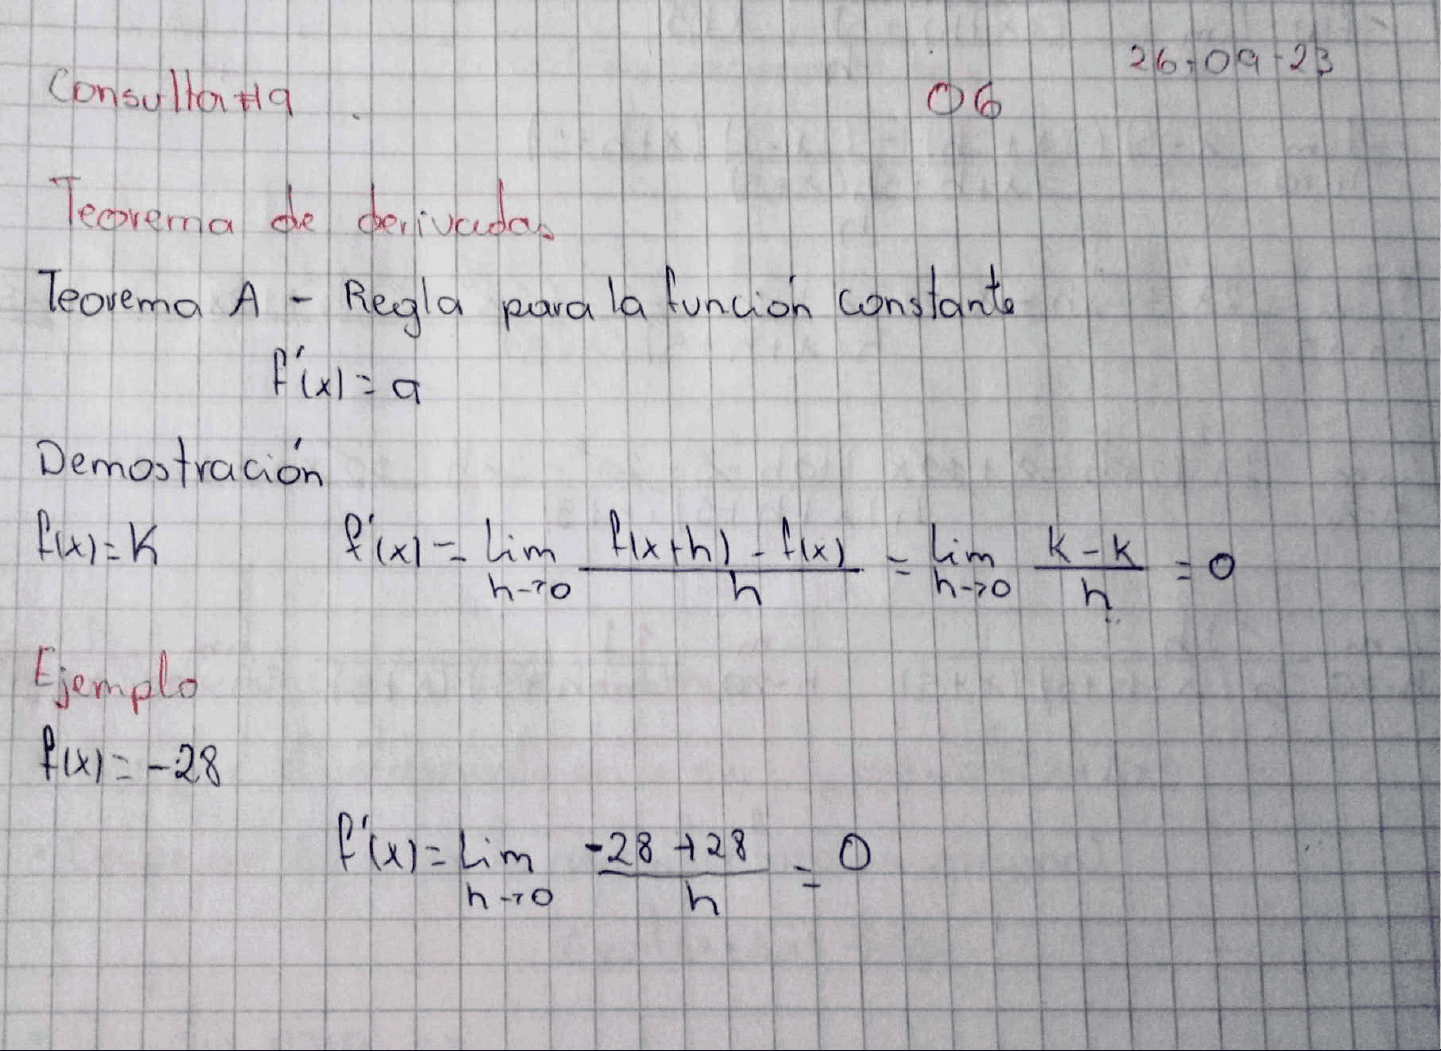 26-09-23
Consulta #9 06
Teorema de derivadas
Teorema A - Regla para la función constante
f'(x) = a
Demostración
f(x) = K f'(x) = Lim h→0 f(x+h) - f(x) / h = Lim h→0 K - K / h = 0
Ejemplo
f(x) = -28
f'(x) = Lim h→0 -28 + 28 / h = 0